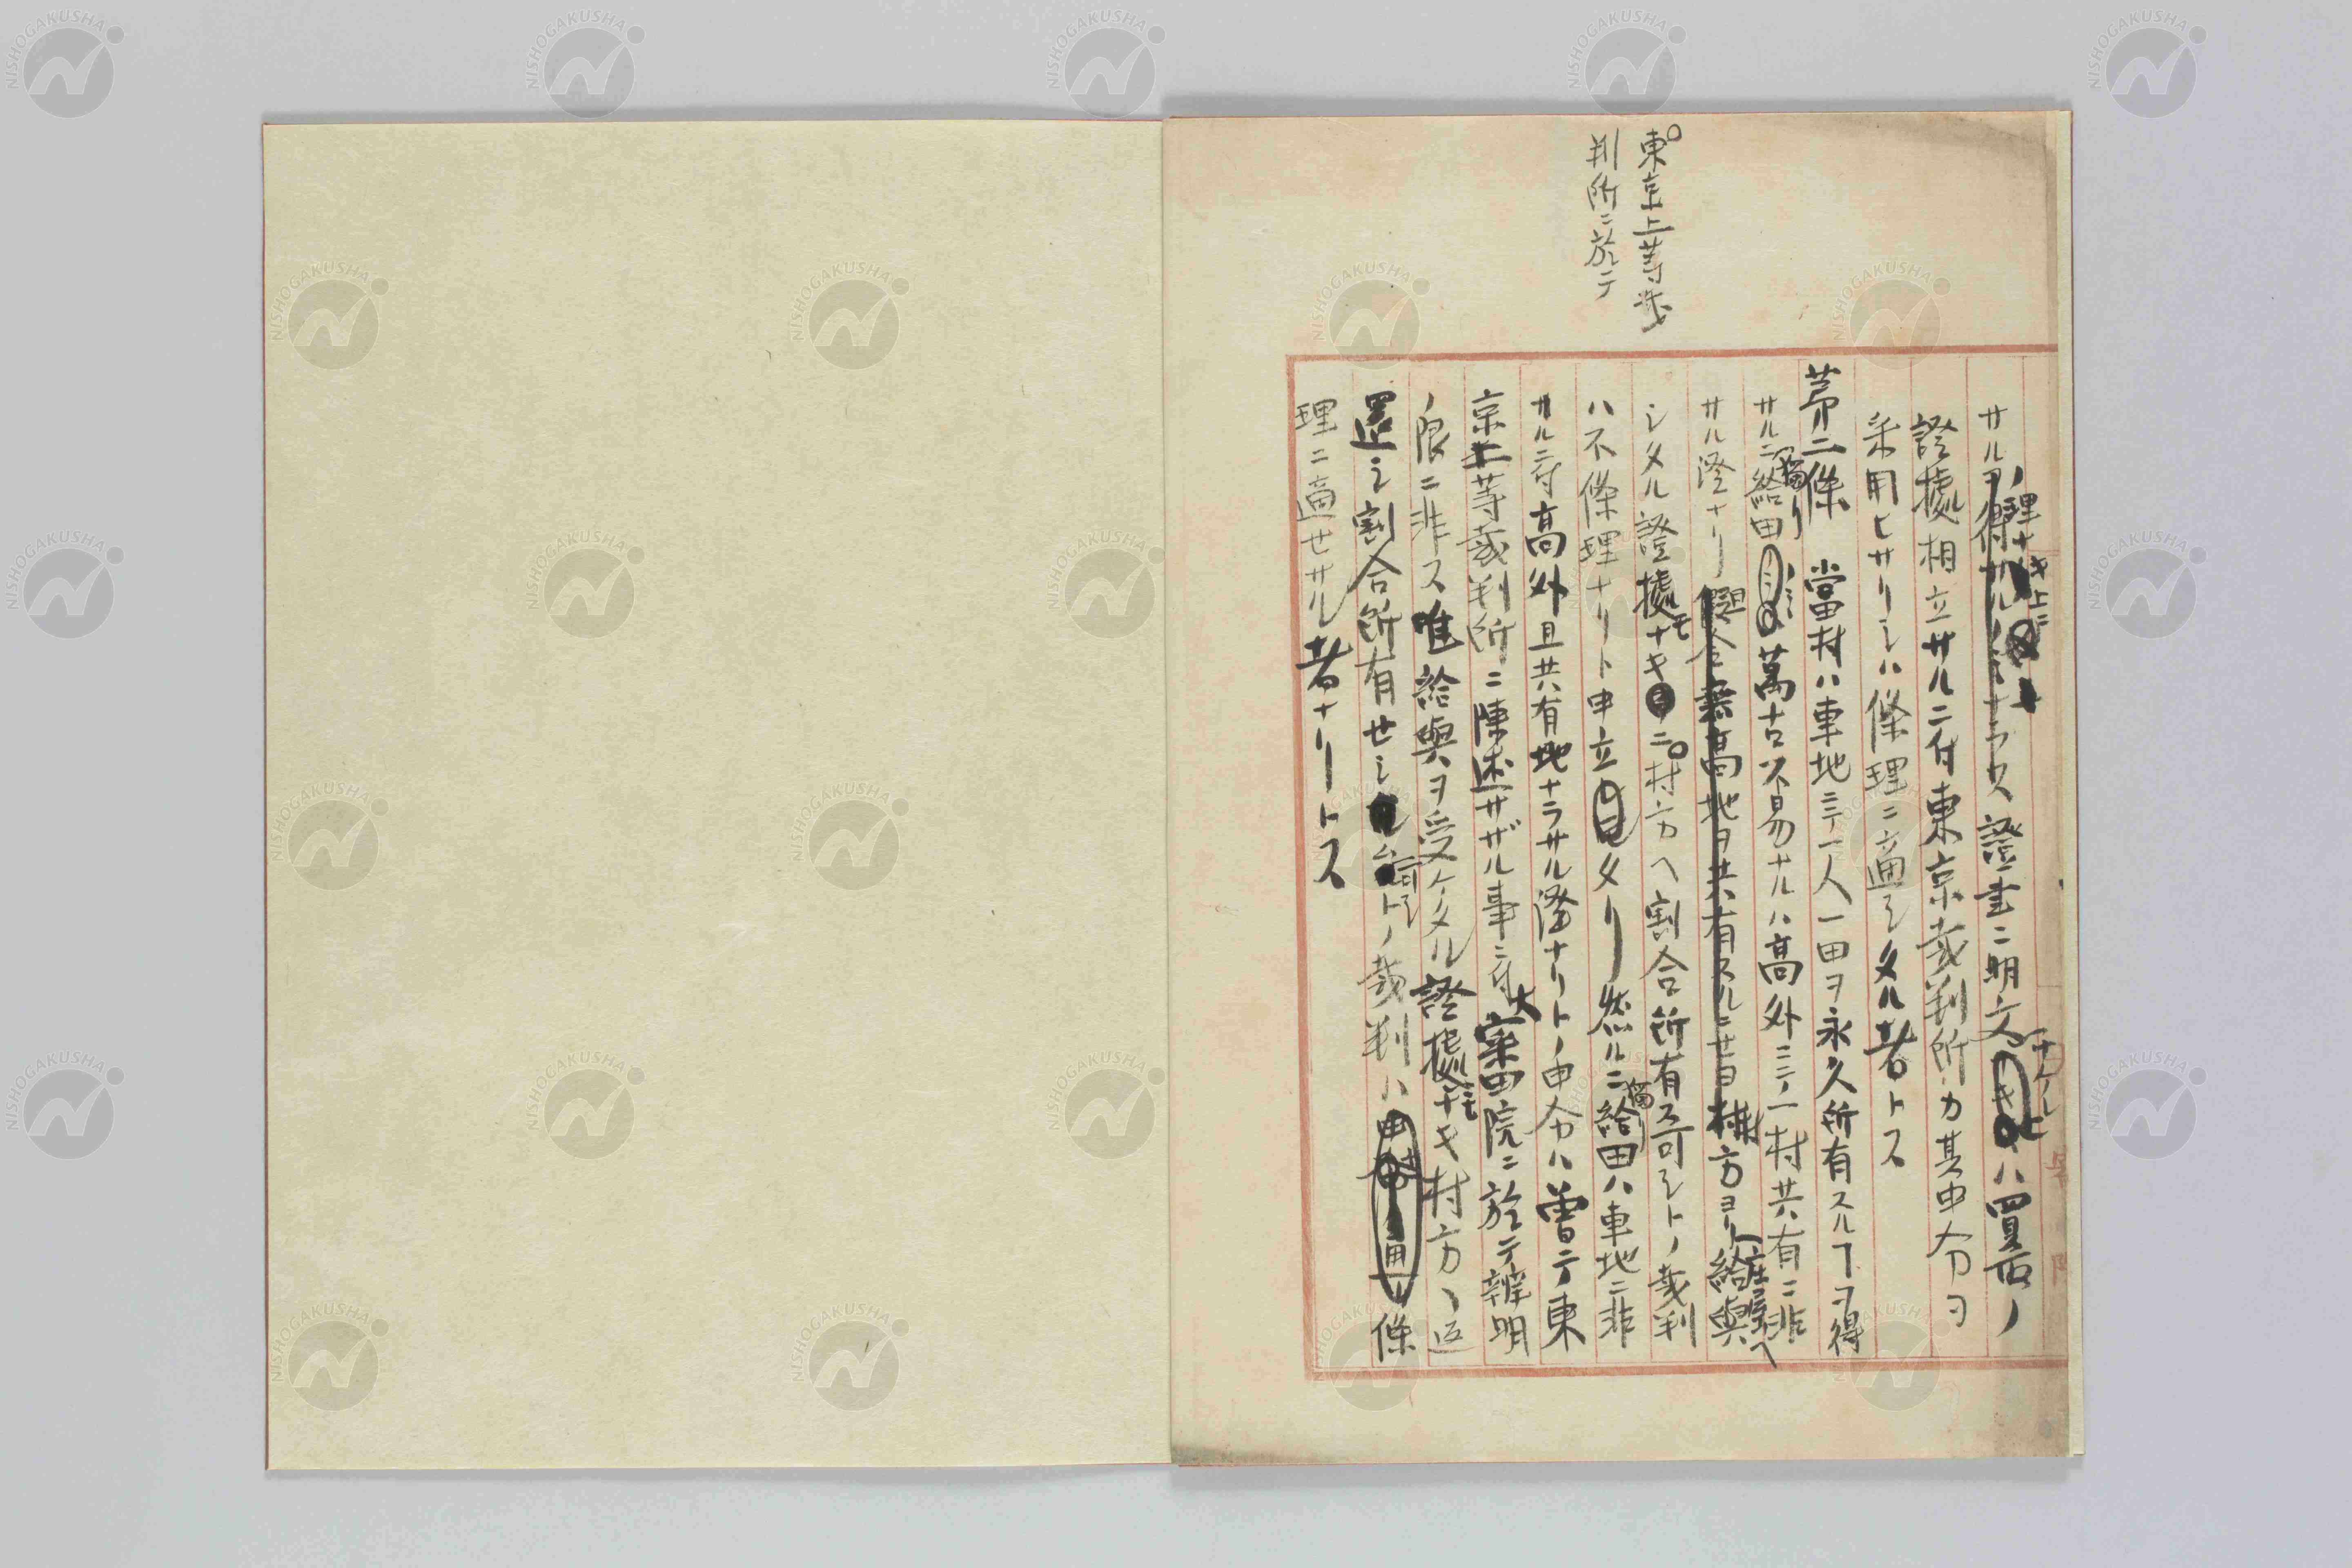 東京上等裁
判所ニ於テ
サルヲ得サルノミナラス證書ニ明文ナケレハ買石ノ
理ナキ上ニ
證據相立サルニ付東京裁判所カ其申分ヲ
采用ヒサリシハ條理ニ適シタル者トス
第二條 當村ハ車地ニテ一人一田ヲ永久所有スルヿヲ得
サルニ給田ノミ萬古不易ナルハ高外ニシテ一村共有ニ非
獨リ
サル證ナリ縱令無高地ヲ共有スルニモ目村方ヨリ給與
庄屋ヘ
シタル證據モナキニ村方ヘ割合所有ス可シトノ裁判
ハ不條理ナリト申立タリ然ルニ給田ハ車地ニ非
獨リ
サルニ付高外且共有地ナラサル證ナリトノ申分ハ曽テ東
京上等裁判所ニ陳述サザル事ニ付大審院ニ於テ辨明
ノ限ニ非ス唯給與ヲ受ケタル證據モナキ村方ヘ返
還シ割合所有セシム可シトノ裁判ハ條
理ニ適セサル者ナリトス
NISHOGAKUSHA